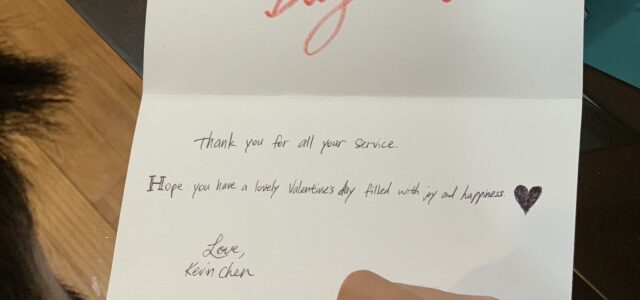 Thank you for all your service.
Hope you have a lovely Valentine's day filled with joy and happiness.
Love,
Kevin Chen